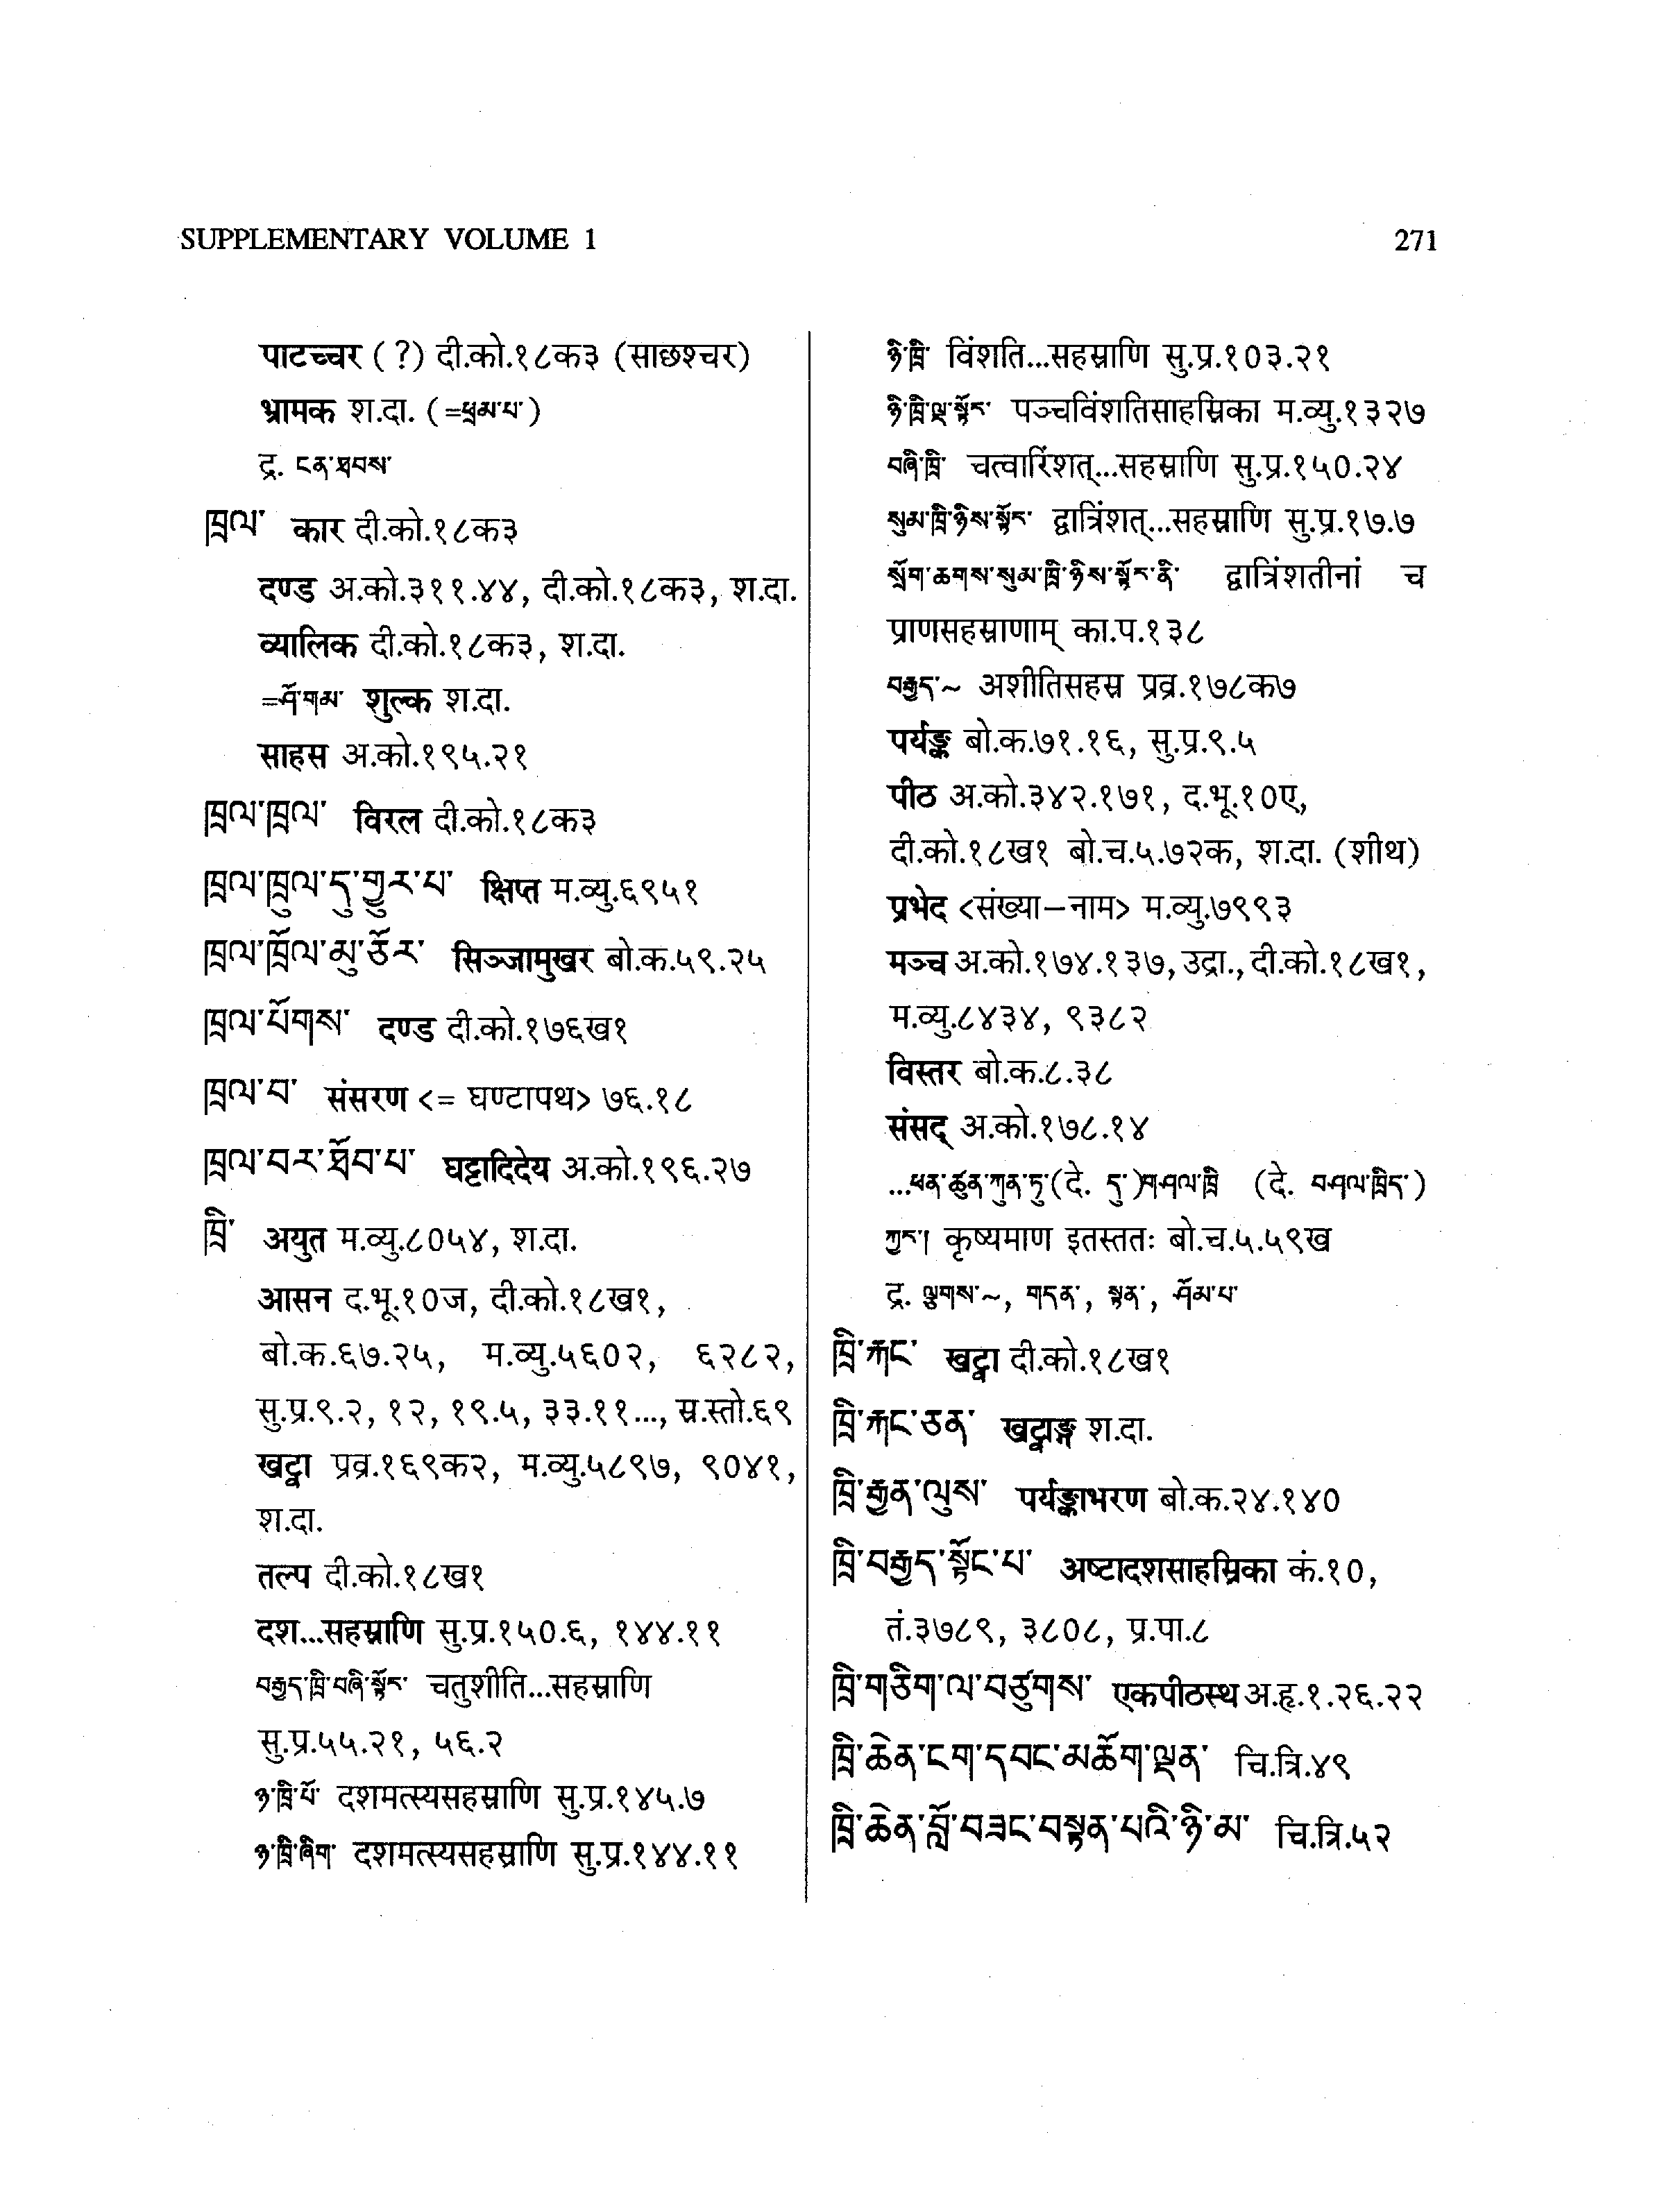 SUPPLEMENTARY VOLUME 1
271
पाटच्चर (?) दी.को.१८क३ (साछश्चर)
भ्रामक श.दा. (=ཕྲམ་པ་)
द्र. ངན་ཐབས་
ཁྲལ་ कार दी.को.१८क३
दण्ड अ.को.३११.४४, दी.को.१८क३, श.दा.
व्यालिक दी.को.१८क३, श.दा.
=ཤོ་གམ་ शुल्क श.दा.
साहस अ.को.१९५.२१
ཁྲལ་ཁྲལ་ विरल दी.को.१८क३
ཁྲལ་ཁྲུལ་དུ་གྱུར་པ་ क्षिप्त म.व्यु.६९५१
ཁྲལ་ཁྲོལ་མུ་ཅོར་ सिञ्जामुखर बो.क.५९.२५
ཁྲལ་པོགས་ दण्ड दी.को.१७६ख१
ཁྲལ་བ་ संसरण <= घण्टापथ> ७६.१८
ཁྲལ་བར་ཐོབ་པ་ घट्टादिदेय अ.को.१९६.२७
ཁྲི་ अयुत म.व्यु.८०५४, श.दा.
आसन द.भू.१०ज, दी.को.१८ख१,
बो.क.६७.२५, म.व्यु.५६०२, ६२८२,
सु.प्र.९.२, १२, १९.५, ३३.११..., स्र.स्तो.६९
खट्वा प्रव्र.१६९क२, म.व्यु.५८९७, ९०४१,
श.दा.
तल्प दी.को.१८ख१
दश...सहस्राणि सु.प्र.१५०.६, १४४.११
བརྒྱད་ཁྲི་བཞི་སྟོར་ चतुशीति...सहस्राणि
सु.प्र.५५.२१, ५६.२
ཉ་ཁྲི་པོ་ दशमत्स्यसहस्राणि सु.प्र.१४५.७
ཉ་ཁྲི་ཞིག་ दशमत्स्यसहस्राणि सु.प्र.१४४.११
ཉི་ཁྲི་ विंशति...सहस्राणि सु.प्र.१०३.२१
ཉི་ཁྲི་ལྔ་སྟོར་ पञ्चविंशतिसाहस्रिका म.व्यु.१३२७
བཞི་ཁྲི་ चत्वारिंशत्...सहस्राणि सु.प्र.१५०.२४
སུམ་ཁྲི་ཉིས་སྟོར་ द्वात्रिंशत्...सहस्राणि सु.प्र.१७.७
སྲོག་ཆགས་སུམ་ཁྲི་ཉིས་སྟོར་ནི་ द्वात्रिंशतीनां च
प्राणसहस्राणाम् का.प.१३८
བརྒྱད་~ अशीतिसहस्र प्रव्र.१७८क७
पर्यङ्क बो.क.७१.१६, सु.प्र.९.५
पीठ अ.को.३४२.१७१, द.भू.१०ए,
दी.को.१८ख१ बो.च.५.७२क, श.दा. (शीथ)
प्रभेद <संख्या–नाम> म.व्यु.७९९३
मञ्च अ.को.१७४.१३७, उद्रा., दी.को.१८ख१,
म.व्यु.८४३४, ९३८२
विस्तर बो.क.८.३८
संसद् अ.को.१७८.१४
...ཕན་ཚུན་ཀུན་ཏུ་(दे. དུ་)གཤལ་ཁྲི (दे. བཤལ་ཁྲིད་)
ཀྱང་། कृष्यमाण इतस्ततः बो.च.५.५९ख
द्र. ལྕགས་~, གདན་, སྟན་, ཤོམ་པ་
ཁྲི་རྐང་ खट्वा दी.को.१८ख१
ཁྲི་རྐང་ཅན་ खट्वाङ्ग श.दा.
ཁྲི་རྒྱན་ལུས་ पर्यङ्काभरण बो.क.२४.१४०
ཁྲི་བརྒྱད་སྟོང་པ་ अष्टादशसाहस्रिका कं.१०,
तं.३७८९, ३८०८, प्र.पा.८
ཁྲི་གཅིག་ལ་བཙུགས་ एकपीठस्थ अ.हृ.१.२६.२२
ཁྲི་ཆེན་ངག་དབང་མཆོག་ལྡན་ चि.त्रि.४९
ཁྲི་ཆེན་བློ་བཟང་བསྟན་པའི་ཉི་མ་ चि.त्रि.५२